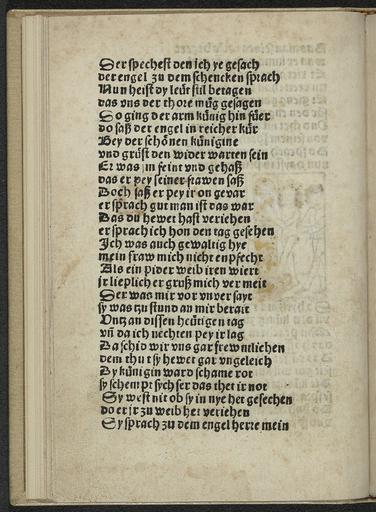 Der spechest den ich ye gesach
der engel zu dem schencken sprach
Nun heist dy leüt stil betagen
das vns der thore müg gesagen
So ging der arm künig hin für
do saß der engel in reicher kür
Bey der schönen künigine
vnd grüst den wider warten sein
Er was im feint vnd gehaß
das er pey seiner frawen saß
Doch saß er pey ir on gevar
er sprach gut man ist das war
Das du hewet hast veriehen
er sprach ich hon den tag gesehen
Ich was auch gewaltig hye
mein fraw mich nicht enpfecht
Als ein pider weib iren wiert
ir lieplich er gruß mich ver meit
Der was mir vor vnver sayt
sy was tzu stund an mir berait
Vntz an dissen heütigen tag
vñ da ich nechten pey ir lag
Da schid wir vns gar frewntlichen
dem thut sy hewet gar vngeleich
Dy künigin ward schame rot
sy schempt sych ser das thet ir not
Sy west nit ob sy in nye het gesechen
do er ir zu weib het veriehen
Sy sprach zu dem engel herre mein